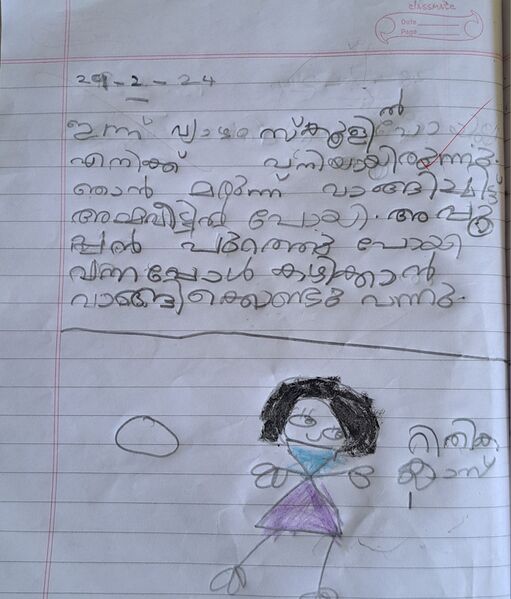 classmate
Date
Page
29-2-24
ഇന്ന് വ്യാഴം സ്കൂളിൽ പോ
എനിക്ക് പനിയായിരുന്നു.
ഞാൻ മരുന്ന് വാങ്ങിച്ചിട്ട്
അമ്മവീട്ടിൽ പോയി. അ പ്പു
പ്പൻ പുറത്തെക്കു പോയി
വന്നപ്പോൾ കഴിക്കാൻ
വാങ്ങികൊണ്ടു വന്നു.
റിതിക
ക്ലാസ്
1